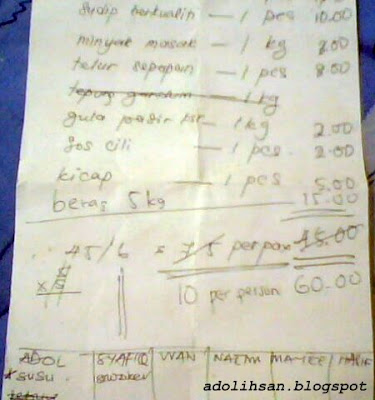 sudip berkualiti — 1 pcs 10.00
minyak masak — 1 kg 7.00
telur sepapan — 1 pcs 8.00
tepung gandum — 1 kg
gula pasir — 1 kg 2.00
sos cili — 1 pcs 2.00
kicap — 1 pcs 5.00
beras 5 kg 15.00
45/6 = 7.5 per pax 45.00
10 per person 60.00
ADOL SYAFIQ WAN
SUSU
adolihsan.blogspot